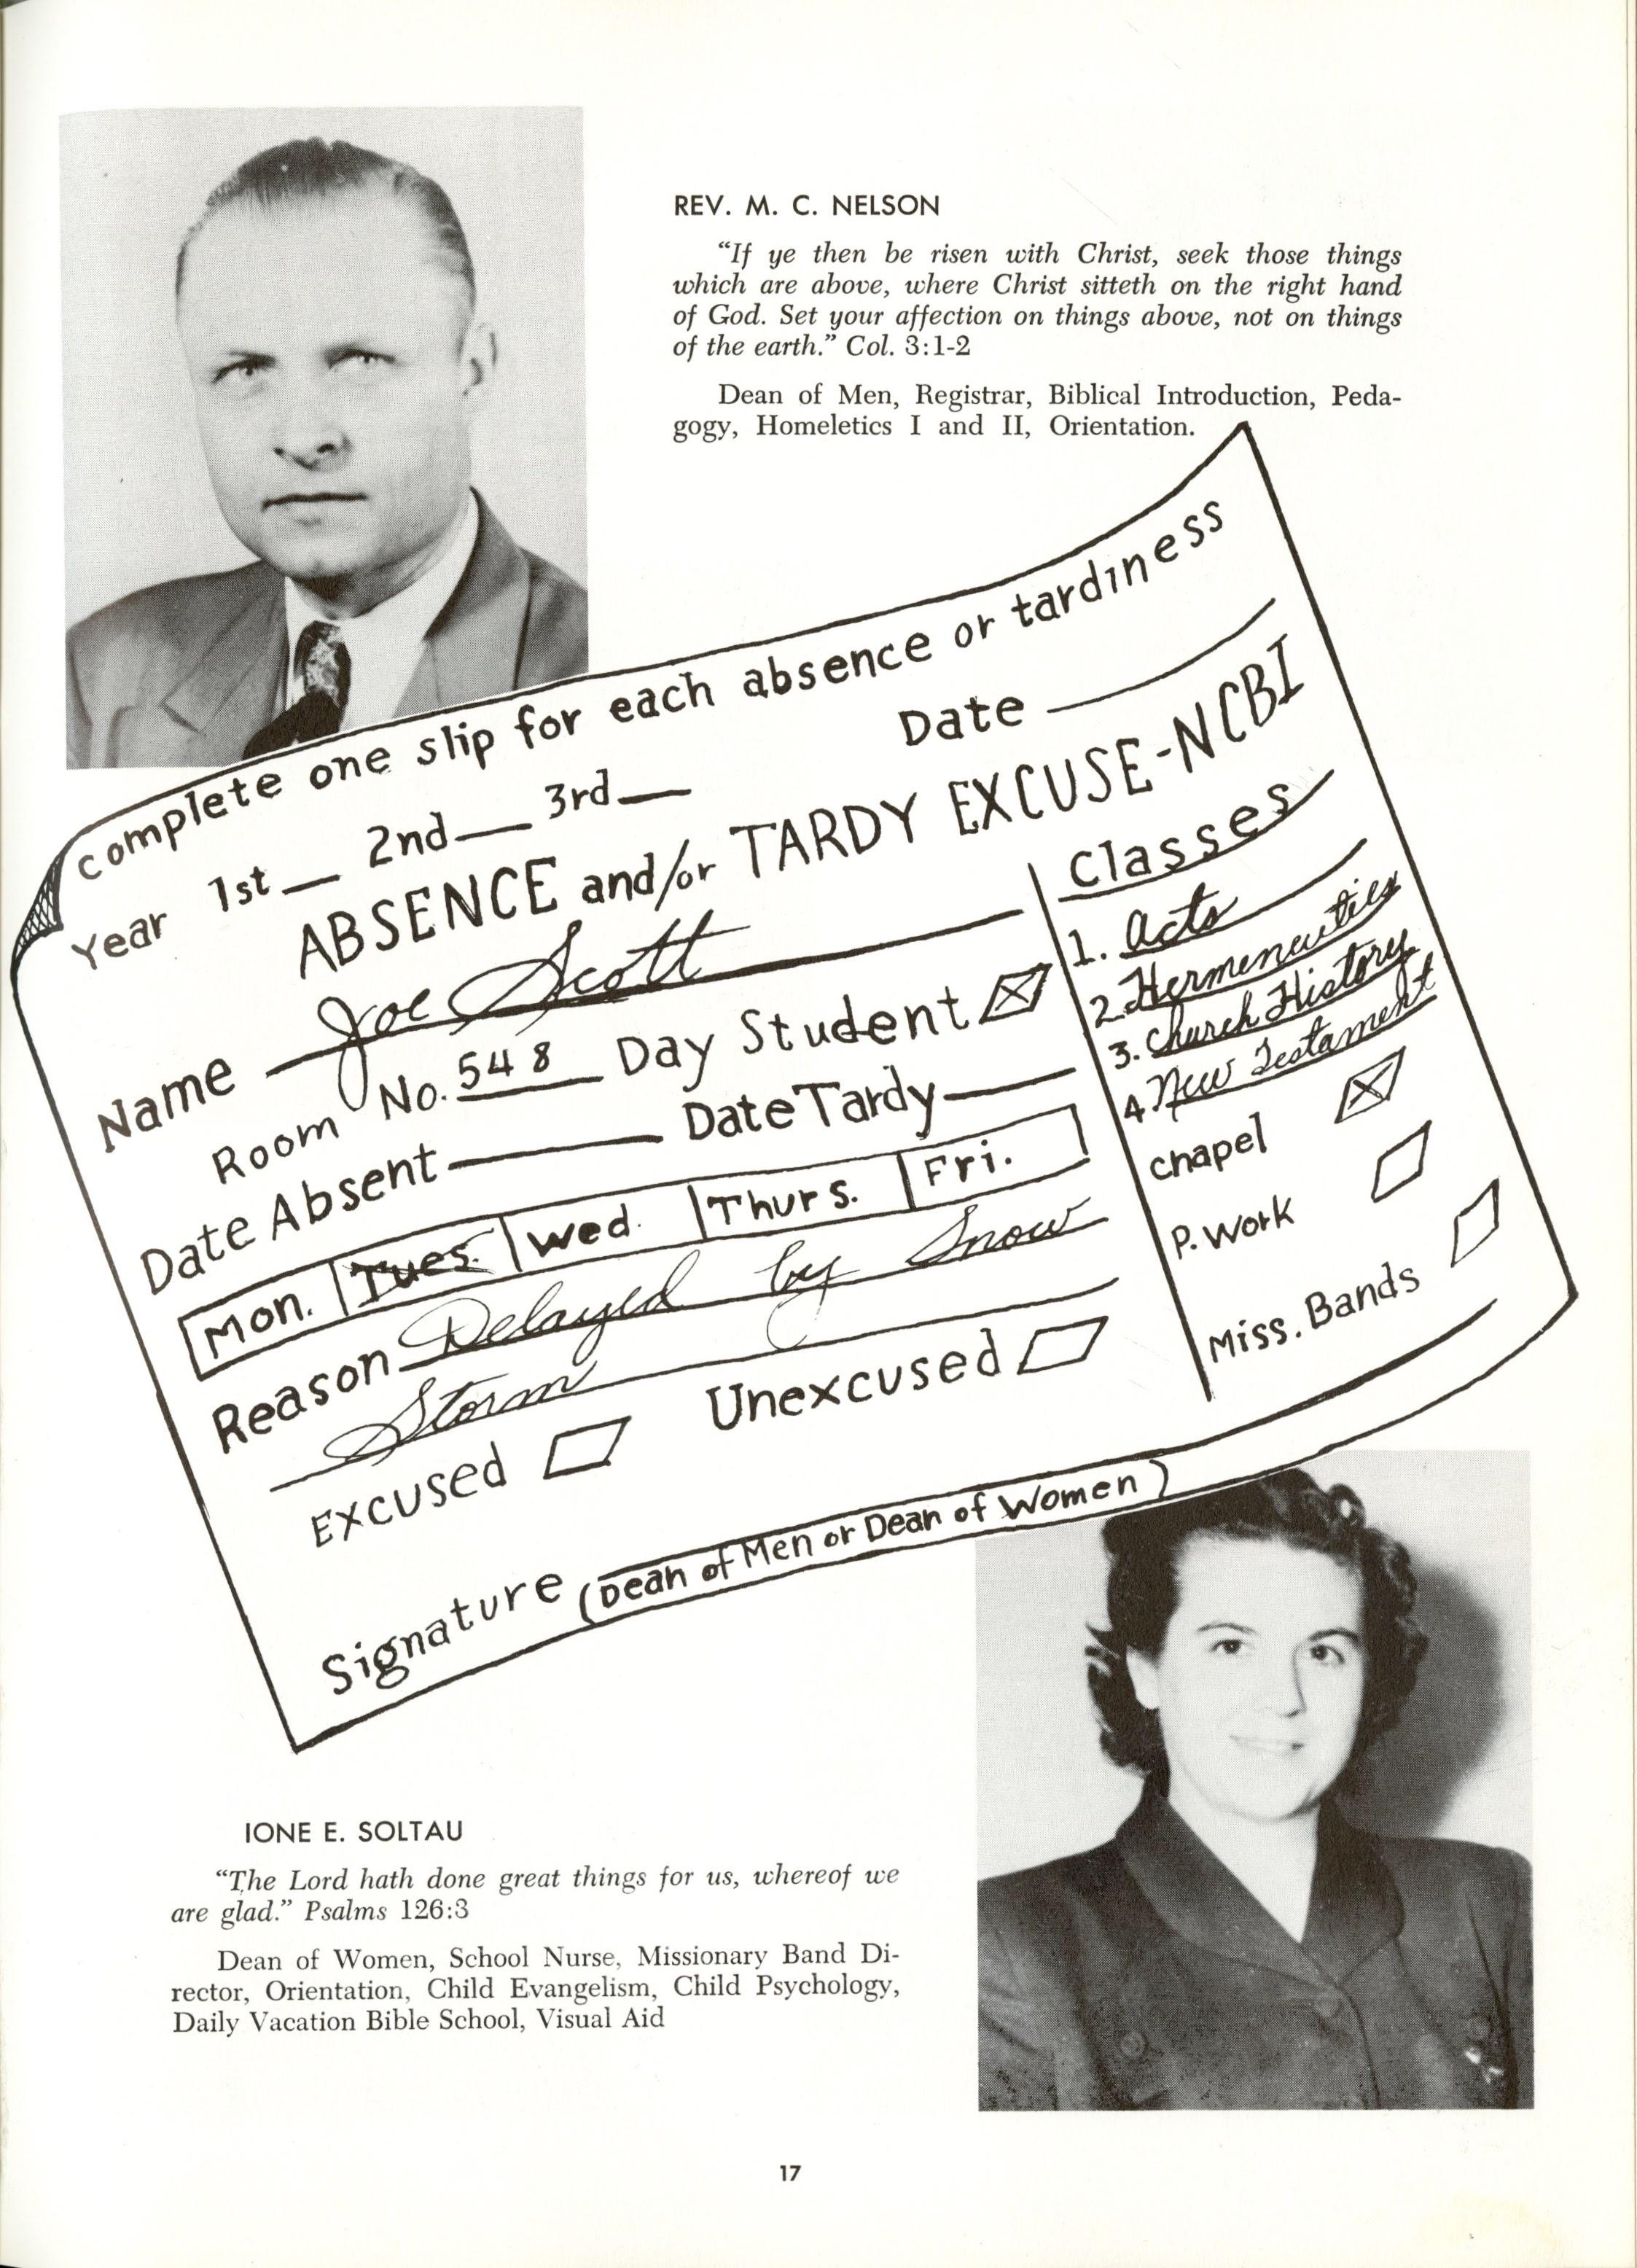 REV. M. C. NELSON
“If ye then be risen with Christ, seek those things
which are above, where Christ sitteth on the right hand
of God. Set your affection on things above, not on things
of the earth.” Col. 3:1-2
Dean of Men, Registrar, Biblical Introduction, Peda-
gogy, Homeletics I and II, Orientation.
complete one slip for each absence or tardiness
Year 1st 2nd 3rd Date
ABSENCE and/or TARDY EXCUSE-NCBI
Name Joe Scott
Room No. 548 Day Student
Date Absent Date Tardy
Mon. Tues. Wed. Thurs. Fri.
Reason Delayed by Snow
Storm
Excused Unexcused
Signature (Dean of Men or Dean of Women)
Classes
1. Acts
2. Hermeneutics
3. Church History
4. New Testament
chapel
P. Work
Miss. Bands
IONE E. SOLTAU
“The Lord hath done great things for us, whereof we
are glad.” Psalms 126:3
Dean of Women, School Nurse, Missionary Band Di-
rector, Orientation, Child Evangelism, Child Psychology,
Daily Vacation Bible School, Visual Aid
17